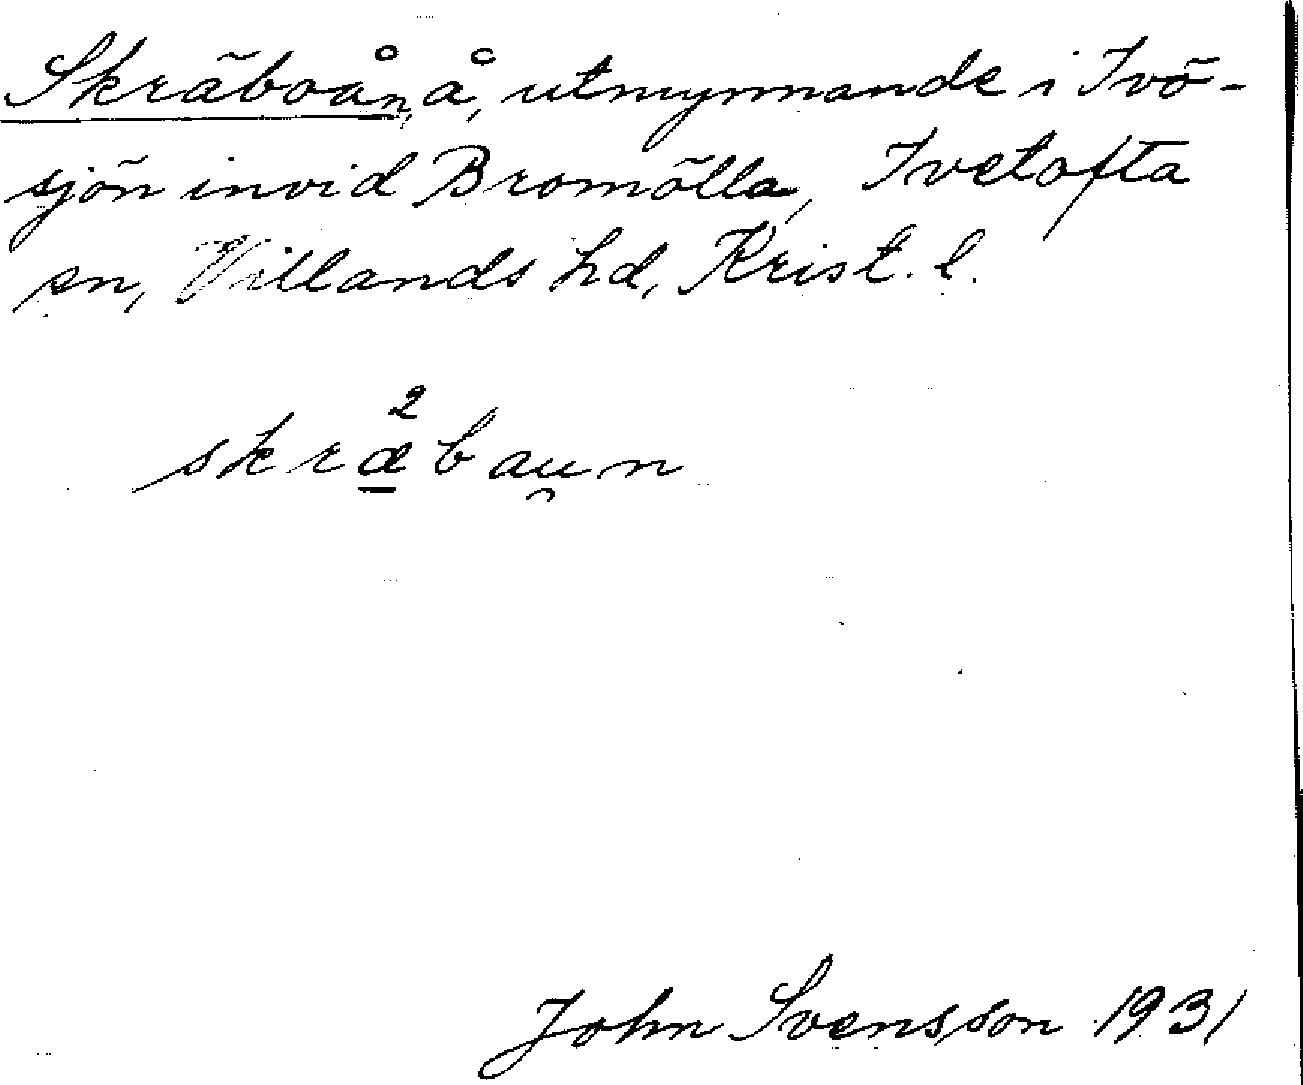 Skräboån, å, utmynnande i Ivö-
sjön invid Bromölla, Ivetofta
sn, Villands hd, Krist. l.
skræ̠²bau̯n
John Svensson 1931